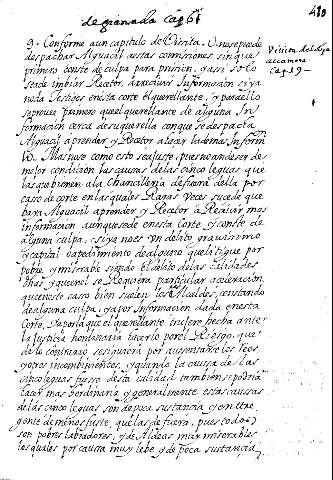 de granada Cap 61
480
9. Conforme a un capitulo de Visita. No se puede
despachar Alguacil a estas comissiones sin que
primero conste de culpa para prision, y assi solo
se a de imbiar Recetor, a reciuir Informacion si ya
no da Testigos en esta corte el querellante, y para ello
se prouee primero que el querellante de alguna In
formacion cerca de su querella con que se despacha
Alguacil a prender y Recetor a hacer la demas Inform
on. Mas no se como esto sea justo, pues no an de ser de
mejor condicion las causas de las cinco leguas que
las que bienen a la Chancilleria de fuera della por
caso de corte en las quales Raras veces sucede que
baya Alguacil a prender y Recetor a Reciuir mas
informacion aunque se de en esta Corte y conste de
alguna culpa, si ya no es un delito grauissimo
y capital o a pedimiento de alguno que litigue por
pobre y miserable siendo el delito de las calidades
dhas y que en el se Requiera particular aceleracion
que en este caso bien suelen los Alcaldes, constando
de alguna culpa, y a por Informacion dada en esta
Corte, o a por la que el querellante trujere hecha ante
la Justicia hordinaria hacerlo por el Riesgo que
de lo contrario se siguiera por ausentarse los Reos
y otros incombinientes, y quando la caussa de las
cinco leguas fuese desta calidad tambien se podria
hacer mas hordinaria y generalmente estas caussas
de las cinco leguas son de poca sustancia y entre
gente de menos juste, que las de fuera, pues todos
son pobres labradores, y de Aldeas muy miserables
los quales por caussa muy lebe y de poca sustancia
Visita del Liz.do
alcamora
Cap. 19